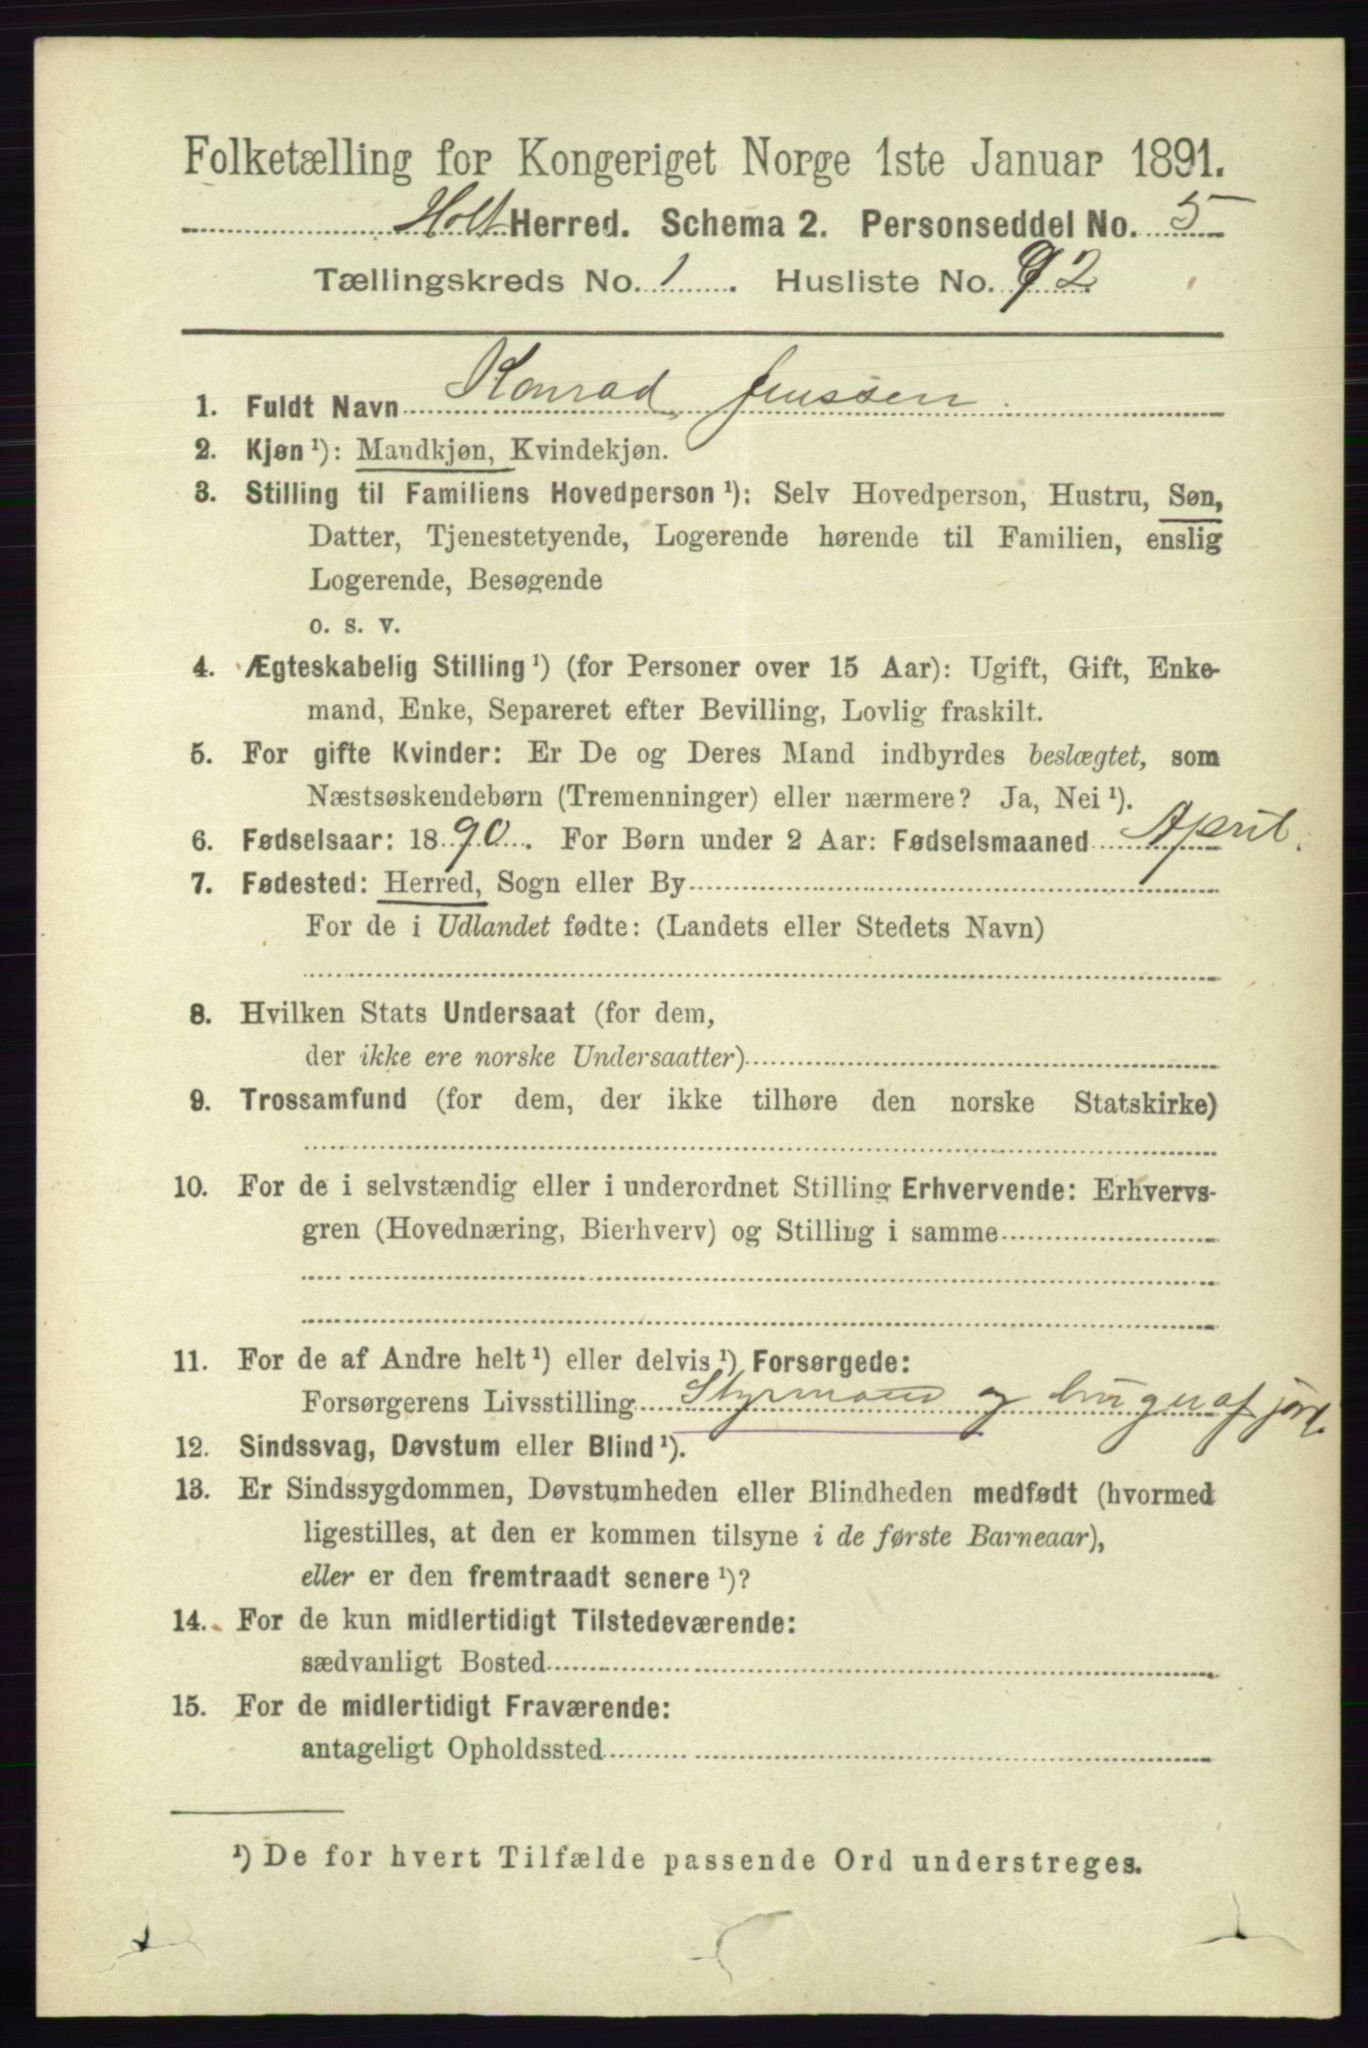 Folketælling for Kongeriget Norge 1ste Januar 1891.
Holt Herred. Schema 2. Personseddel No. 5
Tællingskreds No. 1. Husliste No. 92
1. Fuldt Navn Konrad Jenssen
2. Kjøn ¹): Mandkjøn, Kvindekjøn.
3. Stilling til Familiens Hovedperson ¹): Selv Hovedperson, Hustru, Søn,
Datter, Tjenestetyende, Logerende hørende til Familien, enslig
Logerende, Besøgende
o. s. v.
4. Ægteskabelig Stilling ¹) (for Personer over 15 Aar): Ugift, Gift, Enke-
mand, Enke, Separeret efter Bevilling, Lovlig fraskilt.
5. For gifte Kvinder: Er De og Deres Mand indbyrdes beslægtet, som
Næstsøskendebørn (Tremenninger) eller nærmere? Ja, Nei ¹).
6. Fødselsaar: 1890. For Børn under 2 Aar: Fødselsmaaned April.
7. Fødested: Herred, Sogn eller By
For de i Udlandet fødte: (Landets eller Stedets Navn)
8. Hvilken Stats Undersaat (for dem,
der ikke ere norske Undersaatter)
9. Trossamfund (for dem, der ikke tilhøre den norske Statskirke)
10. For de i selvstændig eller i underordnet Stilling Erhvervende: Erhvervs-
gren (Hovednæring, Bierhverv) og Stilling i samme
11. For de af Andre helt ¹) eller delvis ¹) Forsørgede:
Forsørgerens Livsstilling Styrmand og bruger af jord.
12. Sindssvag, Døvstum eller Blind ¹).
13. Er Sindssygdommen, Døvstumheden eller Blindheden medfødt (hvormed
ligestilles, at den er kommen tilsyne i de første Barneaar),
eller er den fremtraadt senere ¹)?
14. For de kun midlertidigt Tilstedeværende:
sædvanligt Bosted
15. For de midlertidigt Fraværende:
antageligt Opholdssted
¹) De for hvert Tilfælde passende Ord understreges.